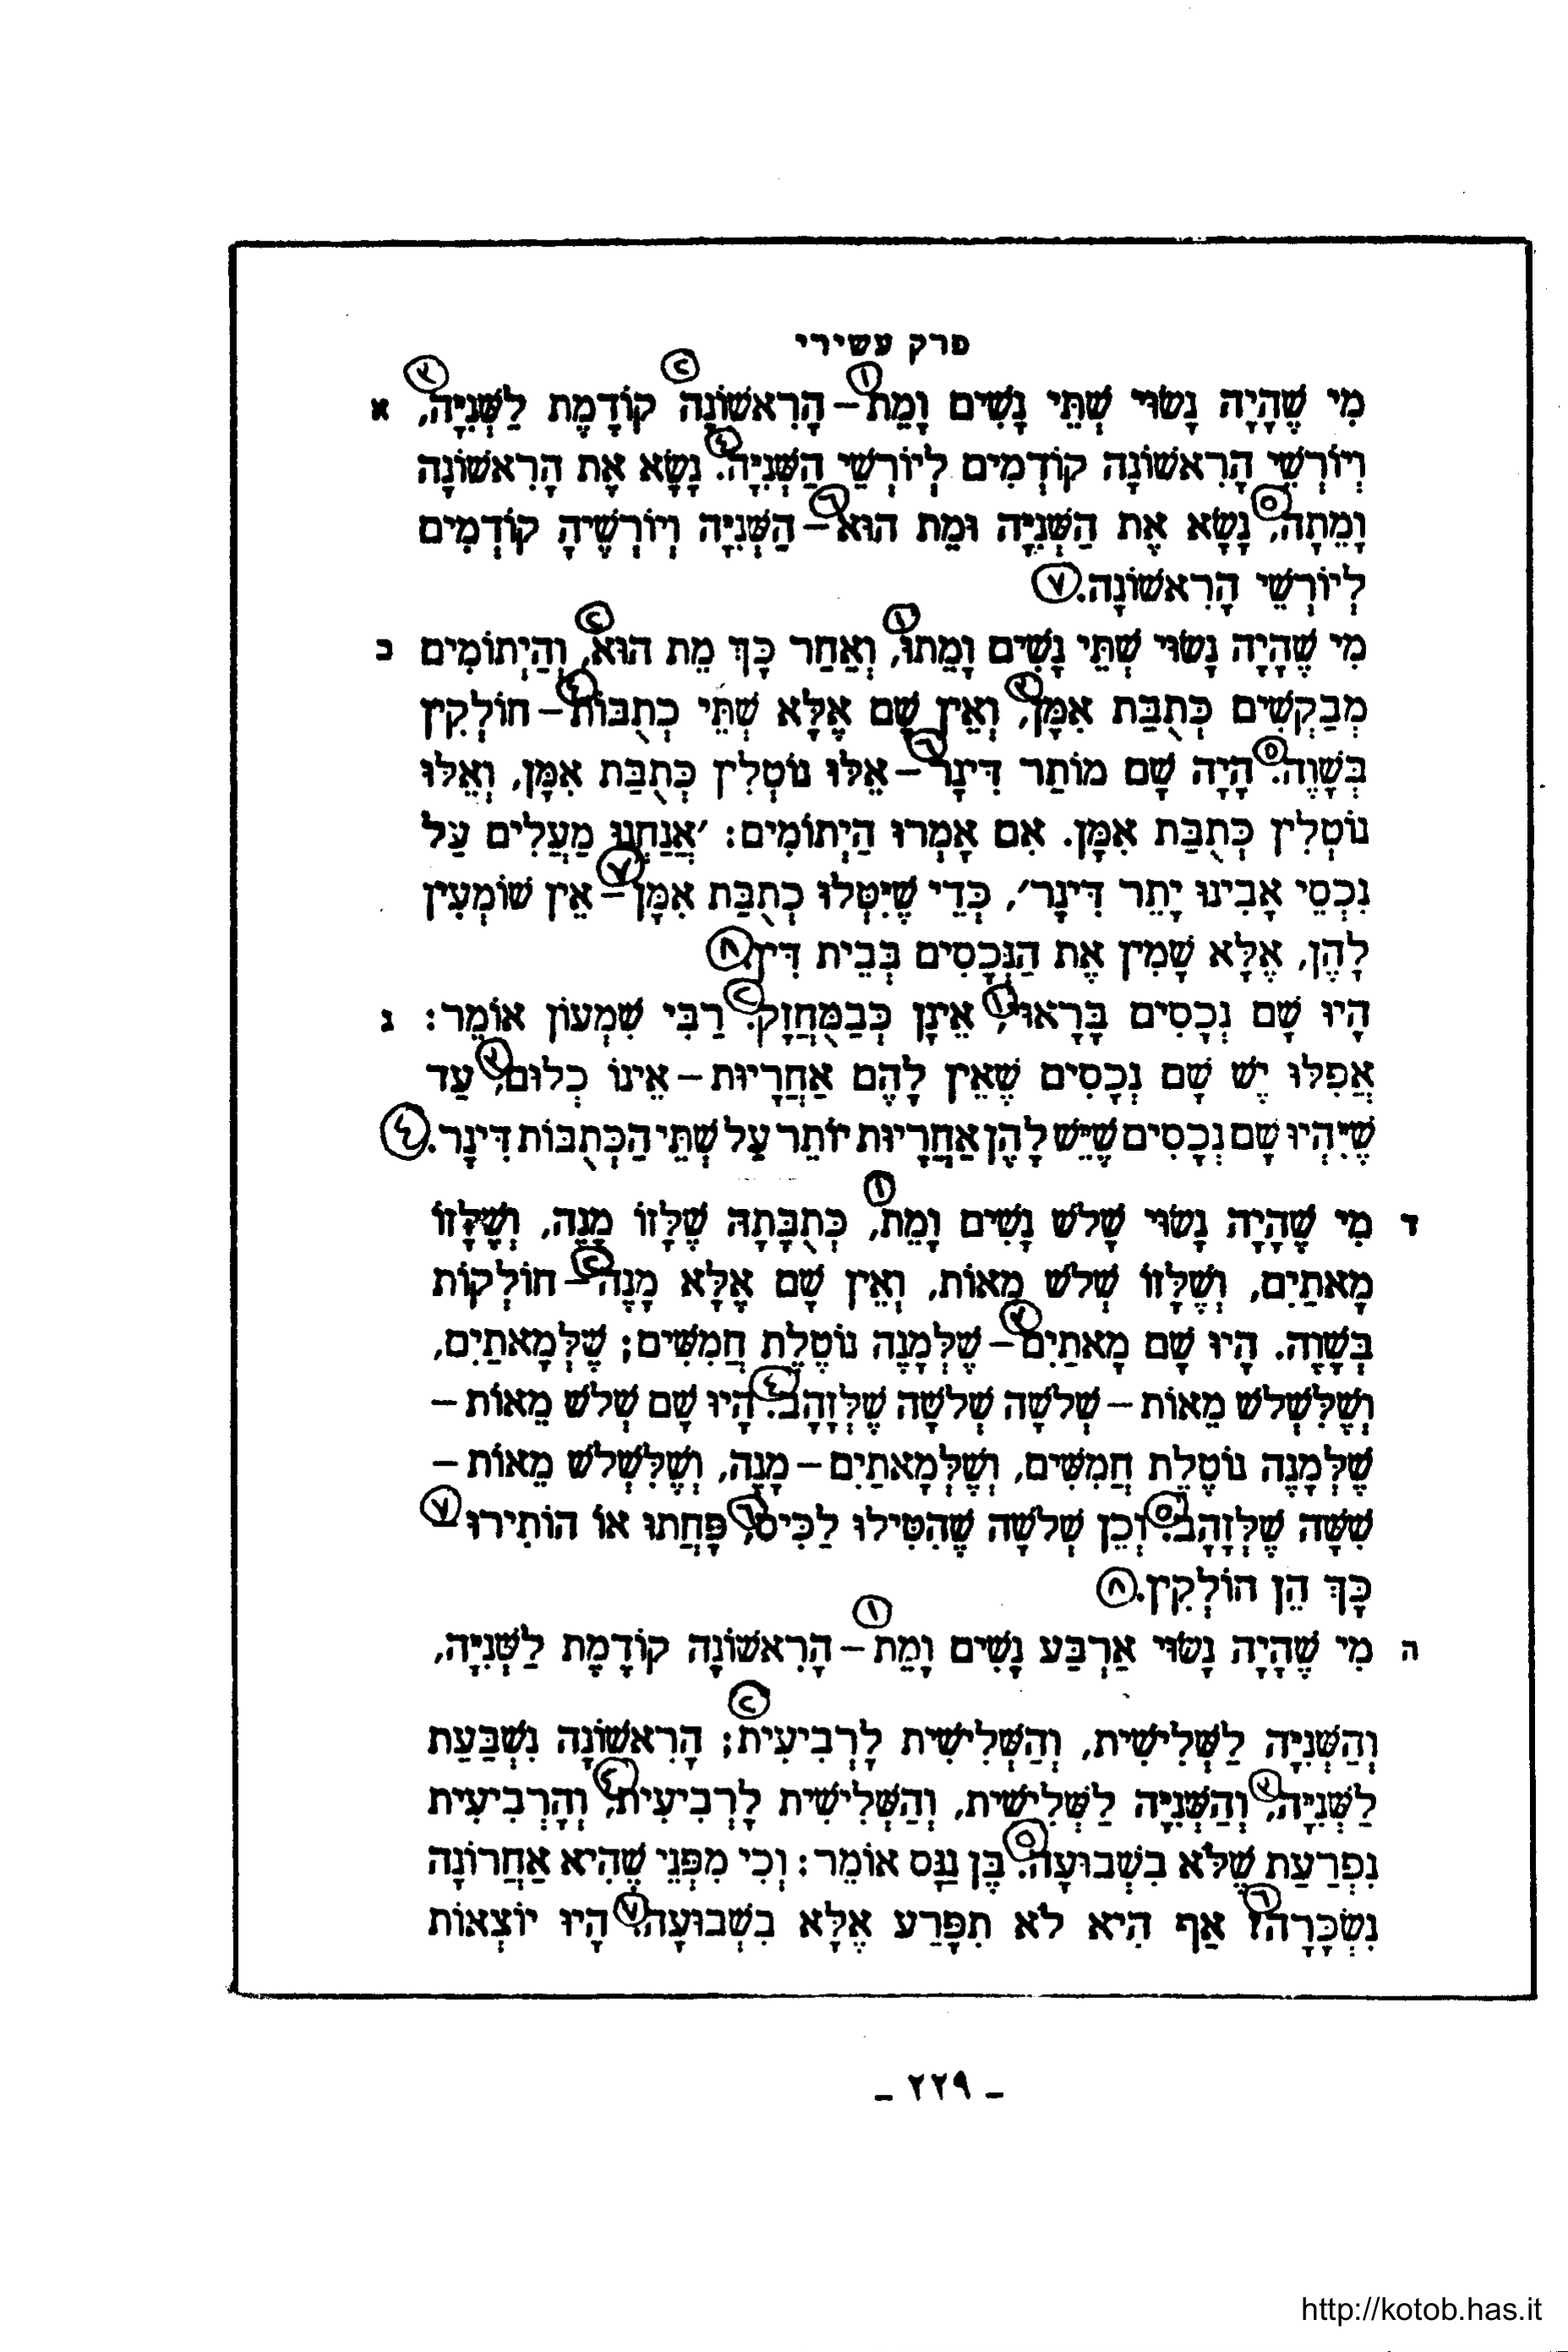 פרק עשירי
א מִי שֶׁהָיָה נָשׂוּי שְׁתֵּי נָשִׁים וָמֵת① – הָרִאשׁוֹנָה② קוֹדֶמֶת לַשְּׁנִיָּה③,
וְיוֹרְשֵׁי הָרִאשׁוֹנָה קוֹדְמִים לְיוֹרְשֵׁי הַשְּׁנִיָּה④. נָשָׂא אֶת הָרִאשׁוֹנָה
וָמֵתָה⑤, נָשָׂא אֶת הַשְּׁנִיָּה וּמֵת הוּא⑥ – הַשְּׁנִיָּה וְיוֹרְשֶׁיהָ קוֹדְמִים
לְיוֹרְשֵׁי הָרִאשׁוֹנָה.⑦
ב מִי שֶׁהָיָה נָשׂוּי שְׁתֵּי נָשִׁים וָמֵתוּ①, וְאַחַר כָּךְ מֵת הוּא②, וְהַיְתוֹמִים
מְבַקְשִׁים כְּתֻבַּת אִמָּן③, וְאֵין שָׁם אֶלָּא שְׁתֵּי כְתֻבּוֹת④ – חוֹלְקִין
בְּשָׁוֶה⑤. הָיָה שָׁם מוֹתַר דִּינָר⑥ – אֵלּוּ נוֹטְלִין כְּתֻבַּת אִמָּן, וְאֵלּוּ
נוֹטְלִין כְּתֻבַּת אִמָּן. אִם אָמְרוּ הַיְתוֹמִים: ׳אֲנַחְנוּ מַעֲלִים עַל
נִכְסֵי אָבִינוּ יָתֵר דִּינָר׳, כְּדֵי שֶׁיִּטְּלוּ כְתֻבַּת אִמָּן⑦ – אֵין שׁוֹמְעִין
לָהֶן, אֶלָּא שָׁמִין אֶת הַנְּכָסִים בְּבֵית דִּין.⑧
ג הָיוּ שָׁם נְכָסִים בָּרָאוּי①, אֵינָן כְּבַמֻּחְזָק②. רַבִּי שִׁמְעוֹן אוֹמֵר:
אֲפִלּוּ יֶשׁ שָׁם נְכָסִים שֶׁאֵין לָהֶם אַחֲרָיוּת – אֵינוֹ כְלוּם③, עַד
שֶׁיִּהְיוּ שָׁם נְכָסִים שֶׁיֵּשׁ לָהֶן אַחֲרָיוּת יוֹתֵר עַל שְׁתֵּי הַכְּתֻבּוֹת דִּינָר.④
ד מִי שֶׁהָיָה נָשׂוּי שָׁלשׁ נָשִׁים וָמֵת①, כְּתֻבָּתָהּ שֶׁלָּזוֹ מָנֶה, וְשֶׁלָּזוֹ
מָאתַיִם, וְשֶׁלָּזוֹ שְׁלשׁ מֵאוֹת, וְאֵין שָׁם אֶלָּא מָנֶה② – חוֹלְקוֹת
בְּשָׁוֶה. הָיוּ שָׁם מָאתַיִם③ – שֶׁלְּמָנֶה נוֹטֶלֶת חֲמִשִּׁים; שֶׁלְּמָאתַיִם,
וְשֶׁלִּשְׁלשׁ מֵאוֹת – שְׁלשָׁה שְׁלשָׁה שֶׁלְּזָהָב④. הָיוּ שָׁם שְׁלשׁ מֵאוֹת –
שֶׁלְּמָנֶה נוֹטֶלֶת חֲמִשִּׁים, וְשֶׁלְּמָאתַיִם – מָנֶה, וְשֶׁלִּשְׁלשׁ מֵאוֹת –
שִׁשָּׁה שֶׁלְּזָהָב⑤. וְכֵן שְׁלשָׁה שֶׁהִטִּילוּ לַכִּיס⑥, פָּחֲתוּ אוֹ הוֹתִירוּ⑦ –
כָּךְ הֵן חוֹלְקִין.⑧
ה מִי שֶׁהָיָה נָשׂוּי אַרְבַּע נָשִׁים וָמֵת① – הָרִאשׁוֹנָה קוֹדֶמֶת לַשְּׁנִיָּה,
וְהַשְּׁנִיָּה לַשְּׁלִישִׁית, וְהַשְּׁלִישִׁית לָרְבִיעִית②; הָרִאשׁוֹנָה נִשְׁבַּעַת
לַשְּׁנִיָּה③, וְהַשְּׁנִיָּה לַשְּׁלִישִׁית, וְהַשְּׁלִישִׁית לָרְבִיעִית④, וְהָרְבִיעִית
נִפְרַעַת שֶׁלֹּא בִשְׁבוּעָה⑤. בֶּן נַנָּס אוֹמֵר: וְכִי מִפְּנֵי שֶׁהִיא אַחֲרוֹנָה
נִשְׂכָּרָה⑥? אַף הִיא לֹא תִפָּרַע אֶלָּא בִשְׁבוּעָה⑦. הָיוּ יוֹצְאוֹת
– ٢٢٩ –
http://kotob.has.it